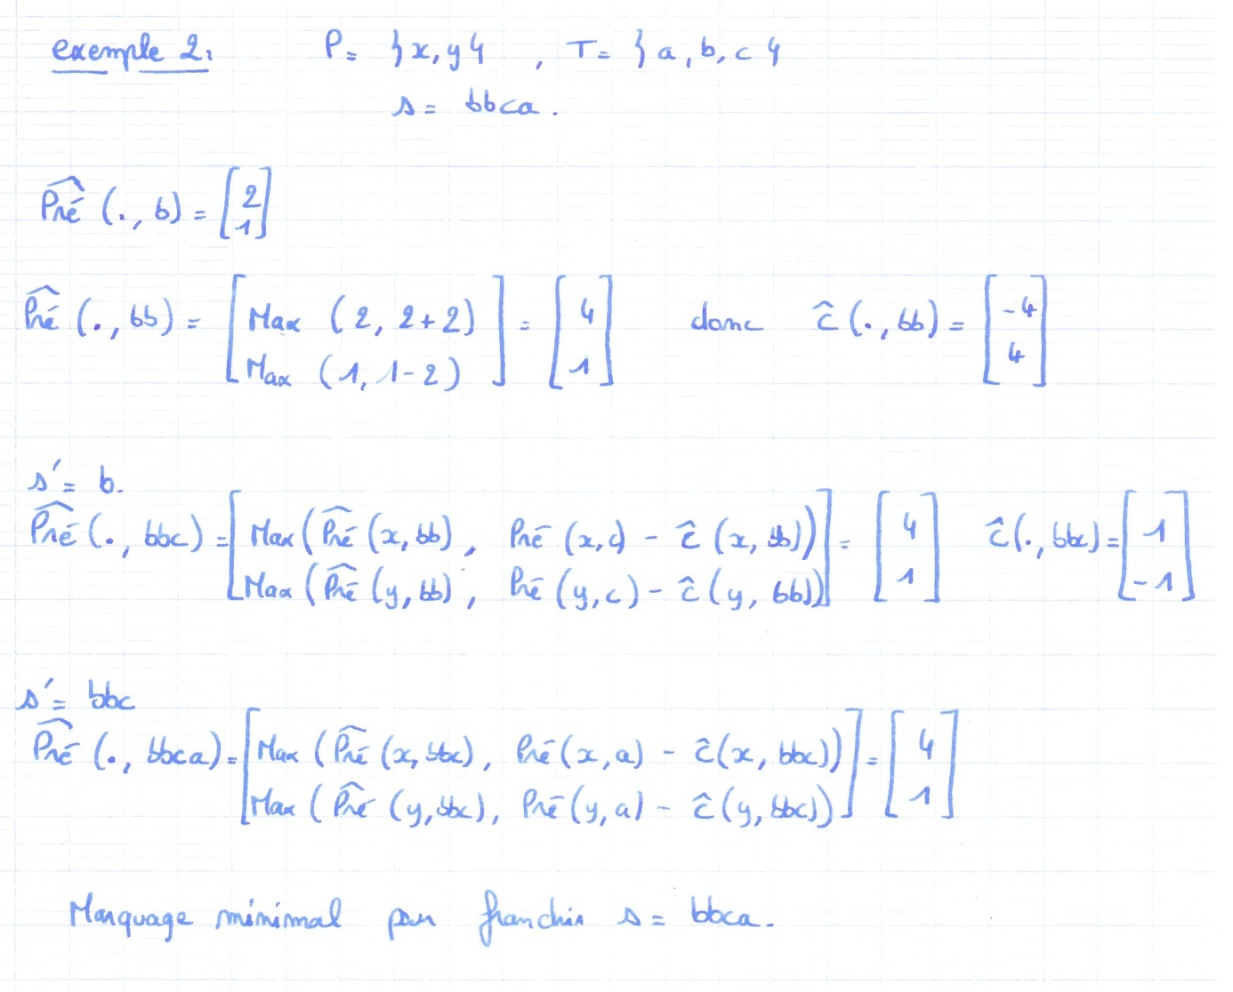 exemple 2: P = }x, y{ , T = }a, b, c{
s = bbca.
P̂ré (., b) = [2 1]
P̂ré (., bb) = [Max (2, 2+2) Max (1, 1-2)] = [4 1] donc ĉ (., bb) = [-4 4]
s' = b.
P̂ré (., bbc) = [Max (P̂ré (x, bb), Pré (x, c) - ĉ (x, bb)) Max (P̂ré (y, bb), Pré (y, c) - ĉ (y, bb))] = [4 1] ĉ(., bbc) = [1 -1]
s' = bbc
P̂ré (., bbca) = [Max (P̂ré (x, bbc), Pré (x, a) - ĉ(x, bbc)) Max (P̂ré (y, bbc), Pré (y, a) - ĉ (y, bbc))] = [4 1]
Marquage minimal pur franchir s = bbca.